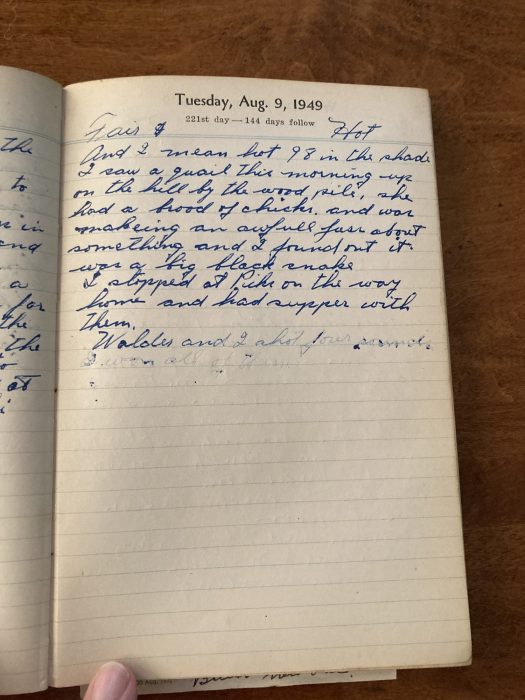 Tuesday, Aug. 9, 1949
221st day—144 days follow
Fair & Hot
And I mean hot 98 in the shade
I saw a quail this morning up
on the hill by the wood pile, she
had a brood of chicks. and was
makeing an awfull fuss about
something and I found out it
was a big black snake
I stopped at on the way
home and had supper with
them.
and I shot four
I won all of them
the
to
in
end
a
for
the
the
to
at